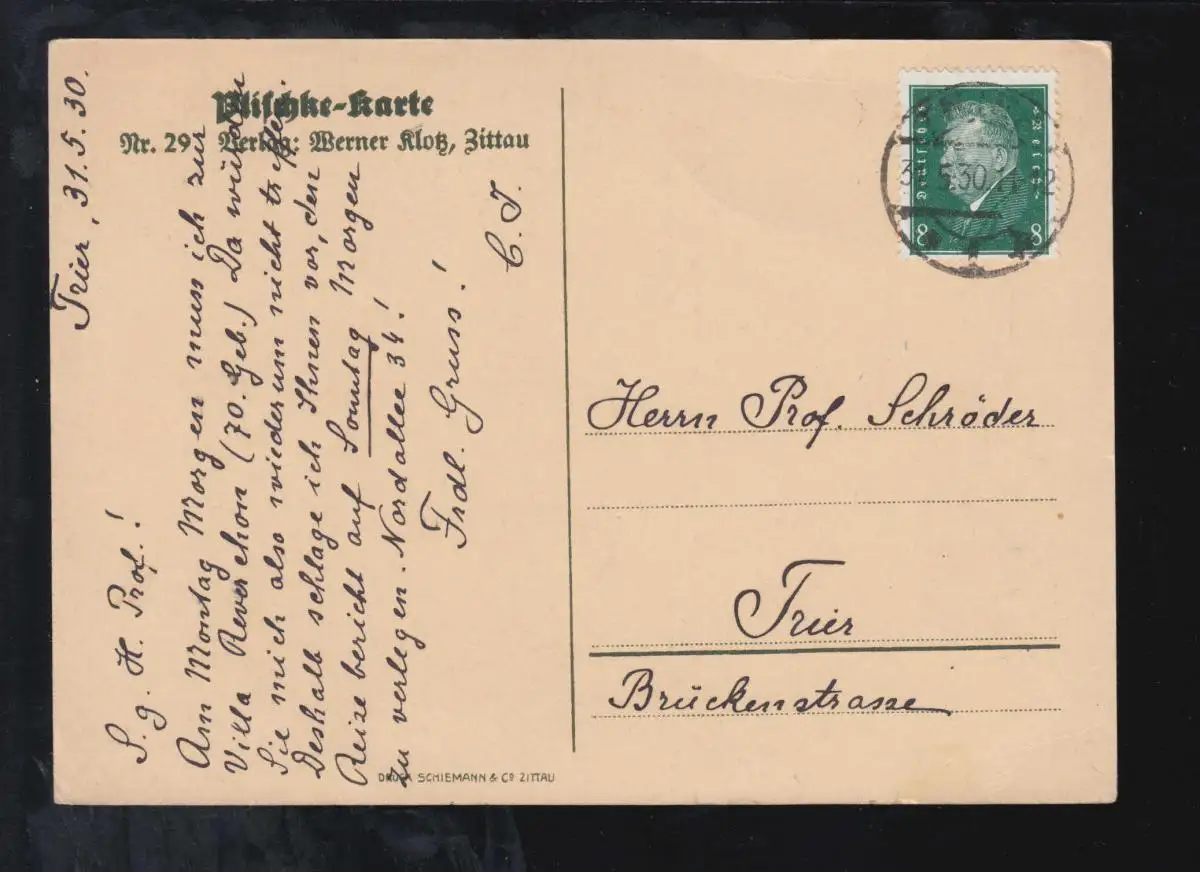 Plischke-Karte
Nr. 29 Verlag: Werner Klotz, Zittau
Trier, 31.5.30.
S. g. H. Prof!
Am Montag Morgen muss ich zur
Villa Reverchon (70. Geb.) Da würden
Sie mich also wiederum nicht treffen.
Deshalb schlage ich Ihnen vor, den
Reisebericht auf Sonntag Morgen
zu verlegen. Nordallee 34!
Frdl. Gruss!
C. J.
DRUCK SCHIEMANN & Co ZITTAU
Deutsches Reich
8 8
5.30
Herrn Prof. Schröder
Trier
Brückenstrasse